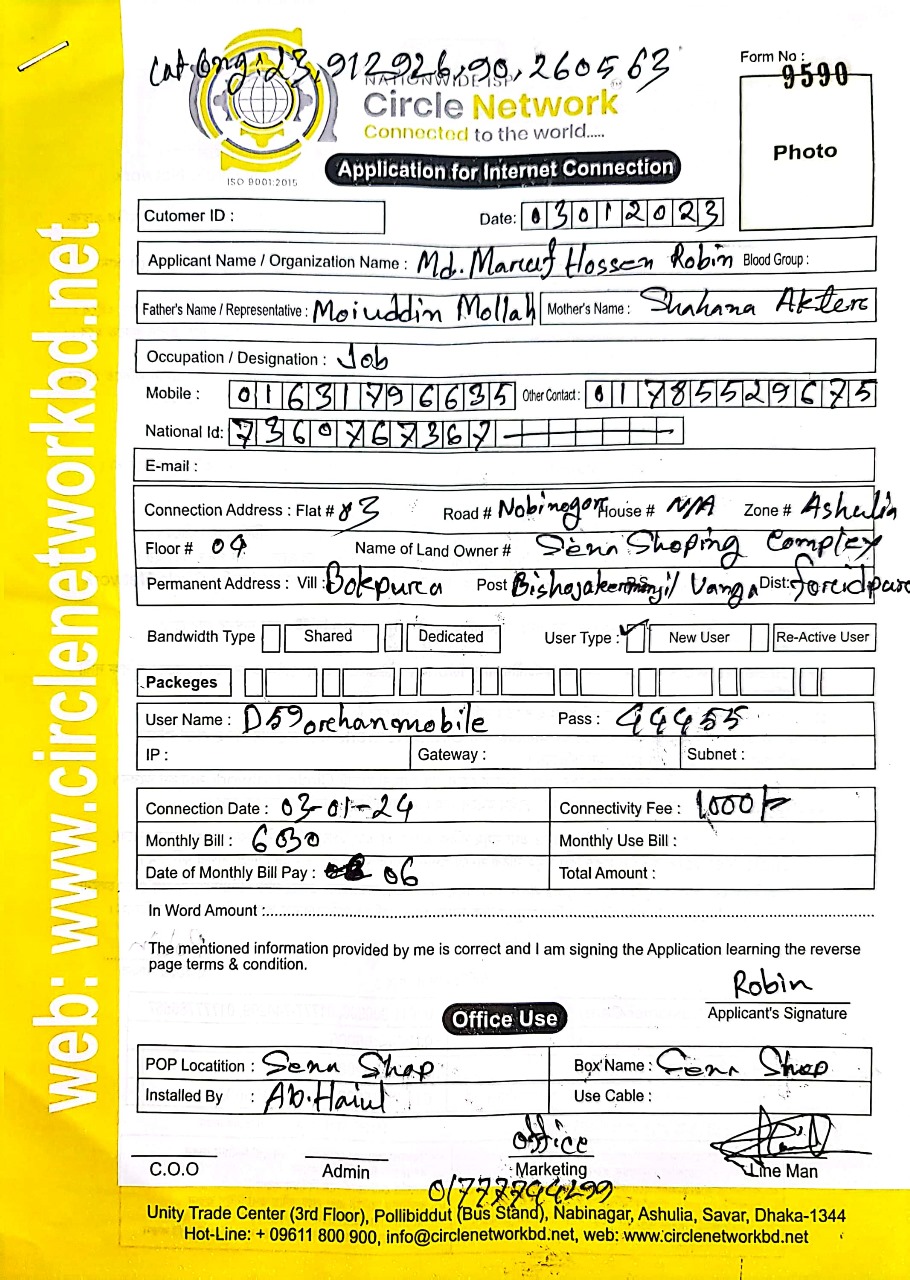 Form No :
9590
Lat Ong: 23,912926,90,260563
NATIONWIDE ISP
Circle Network
Connected to the world.....
ISO 9001:2015
Photo
Application for Internet Connection
Cutomer ID :
Date: 03012023
Applicant Name / Organization Name : Md. Maruf Hossen Robin Blood Group :
Father's Name / Representative : Moiuddin Mollah Mother's Name : Shahana Akter
Occupation / Designation : Job
Mobile : 01631796635 Other Contact : 01785529675
National Id: 7360767367
E-mail :
Connection Address : Flat # 83 Road # Nobinogor House # N/A Zone # Ashulia
Floor # 04 Name of Land Owner # Senn Shoping Complex
Permanent Address : Vill : Bokpura Post Vanga Dist: foridpur
Bandwidth Type Shared Dedicated User Type : New User Re-Active User
Packeges
User Name : D59orchanmobile Pass : 44455
IP : Gateway : Subnet :
Connection Date : 03-01-24 Connectivity Fee : 1000/-
Monthly Bill : 630 Monthly Use Bill :
Date of Monthly Bill Pay : 06 Total Amount :
In Word Amount :
The mentioned information provided by me is correct and I am signing the Application learning the reverse
page terms & condition.
Robin
Applicant's Signature
Office Use
POP Locatition : Senn Shop Box Name : Senn Shop
Installed By : Ab. Use Cable :
office
C.O.O Admin Marketing Line Man
01777794299
Unity Trade Center (3rd Floor), Pollibiddut (Bus Stand), Nabinagar, Ashulia, Savar, Dhaka-1344
Hot-Line: + 09611 800 900, info@circlenetworkbd.net, web: www.circlenetworkbd.net
web: www.circlenetworkbd.net